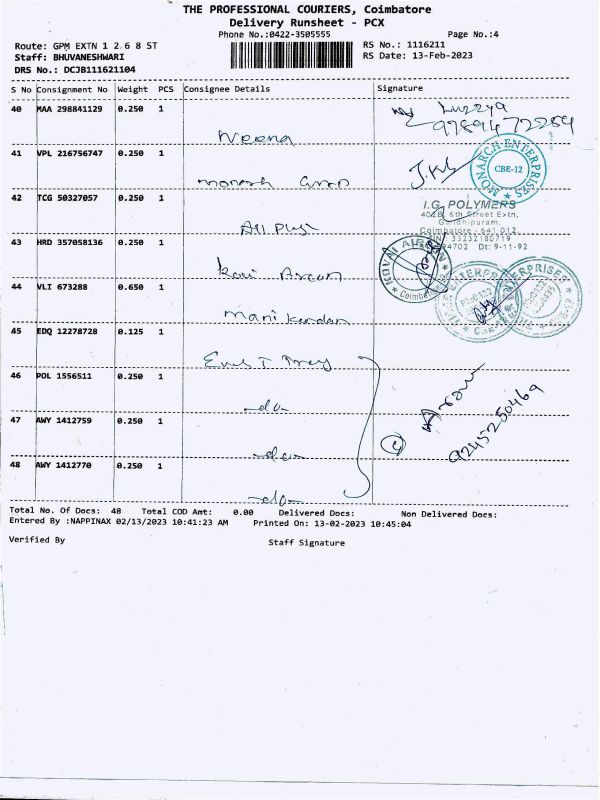 THE PROFESSIONAL COURIERS, Coimbatore
Delivery Runsheet - PCX
Phone No.:0422-3505555
Page No.:4
Route: GPM EXTN 1 2 6 8 ST
RS No.: 1116211
Staff: BHUVANESHWARI
RS Date: 13-Feb-2023
DRS No.: DCJB111621104
S No Consignment No Weight PCS Consignee Details Signature
40 MAA 298841129 0.250 1
Veena
41 VPL 216756747 0.250 1
MONARCH ENTERPRISES
CBE-12
42 TCG 50327057 0.250 1
I.G. POLYMERS
402B, 6th Street Extn,
Gandhipuram,
Coimbatore - 641 012
33232180719
Dt: 9-11-92
43 HRD 357058136 0.250 1
44 VLI 673288 0.650 1
Mani Kandan
45 EDQ 12278728 0.125 1
46 POL 1556511 0.250 1
-do-
47 AWY 1412759 0.250 1
-do-
48 AWY 1412770 0.250 1
-do-
9245250469
Total No. Of Docs: 48 Total COD Amt: 0.00 Delivered Docs: Non Delivered Docs:
Entered By :NAPPINAX 02/13/2023 10:41:23 AM Printed On: 13-02-2023 10:45:04
Verified By
Staff Signature